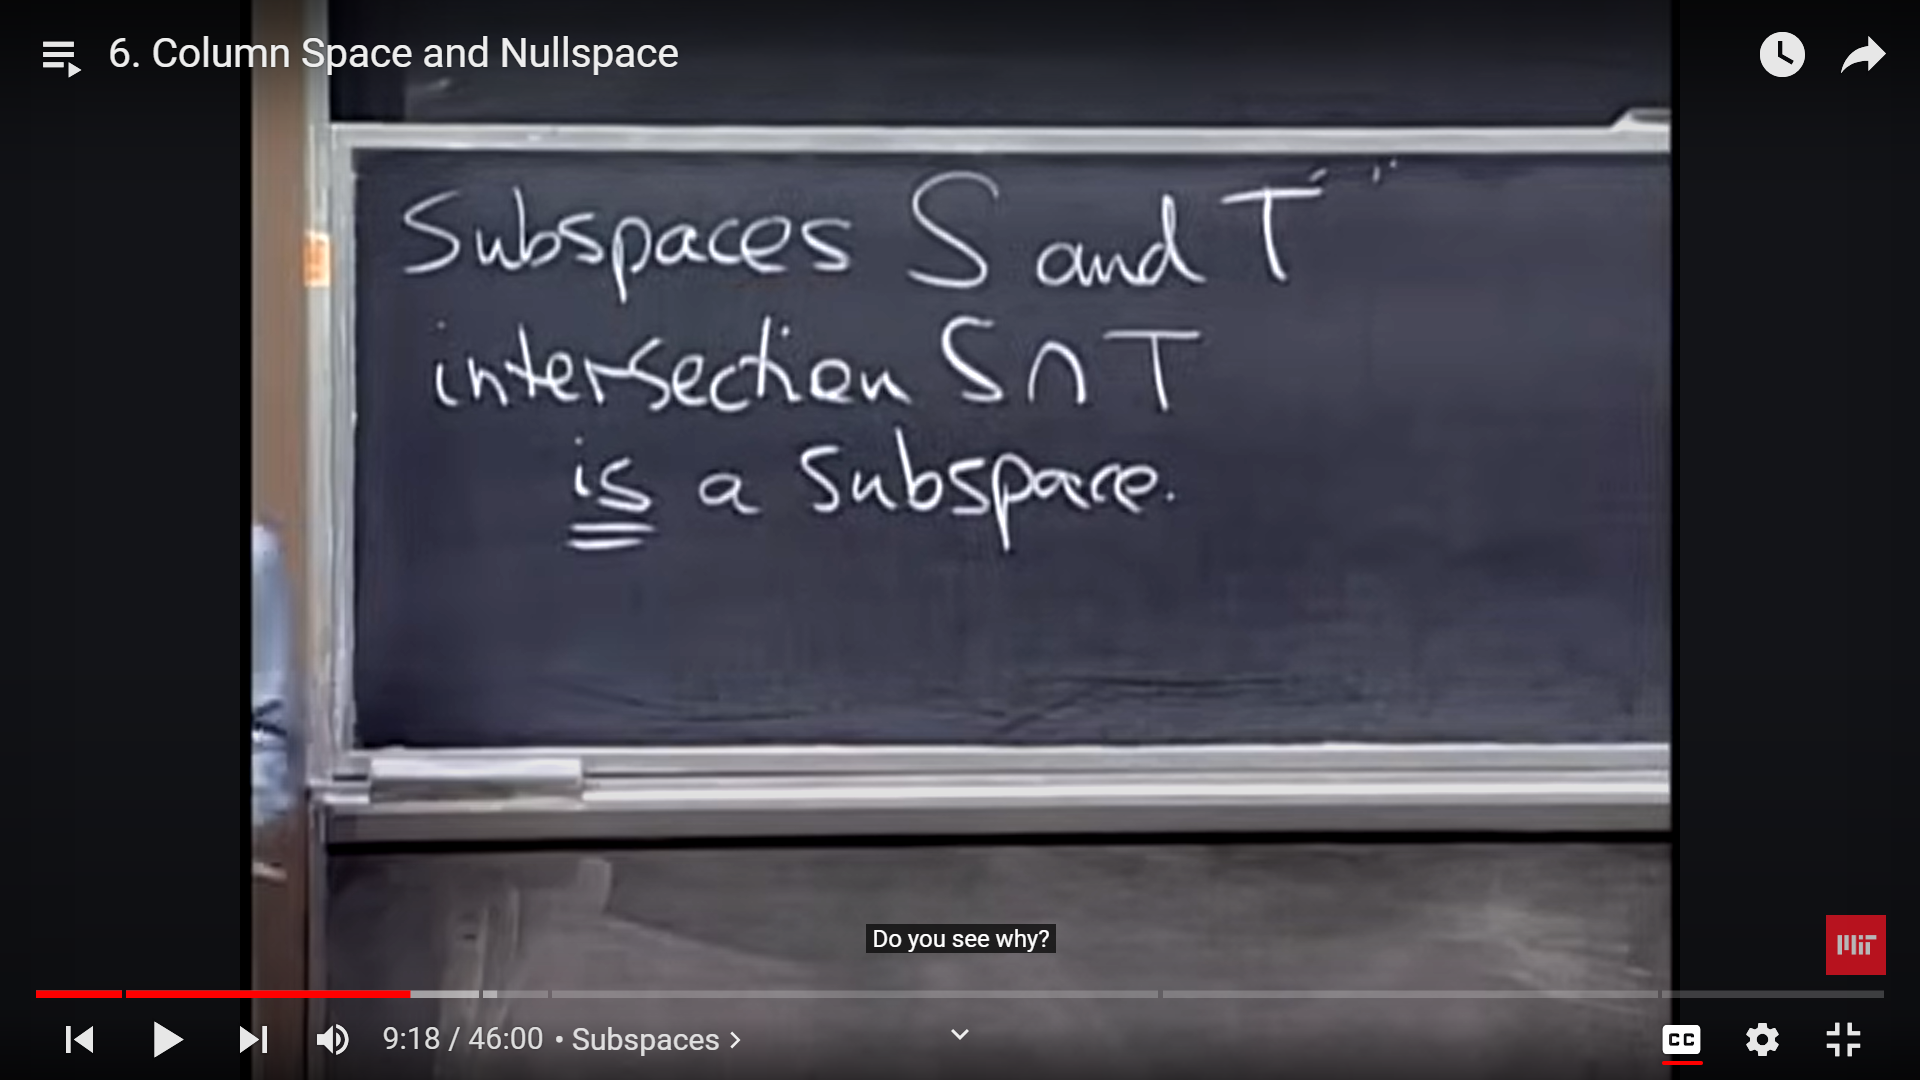 6. Column Space and Nullspace
Subspaces S and T
intersection S∩T
is a subspace.
Do you see why?
MIT
9:18 / 46:00 • Subspaces >
CC